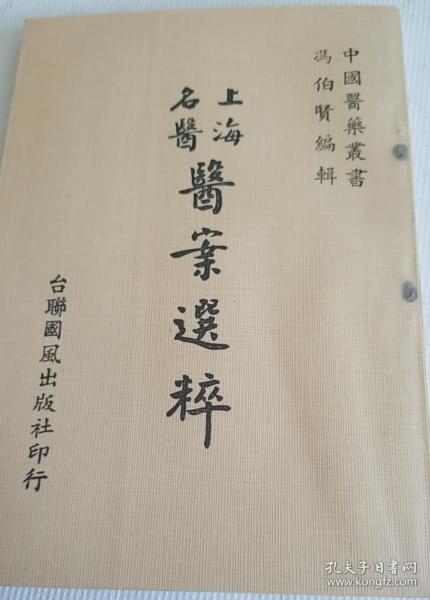 中國醫藥叢書
馮伯賢編輯
上海
名醫
醫案選粹
台聯國風出版社印行
孔夫子旧书网
www.kongfz.com